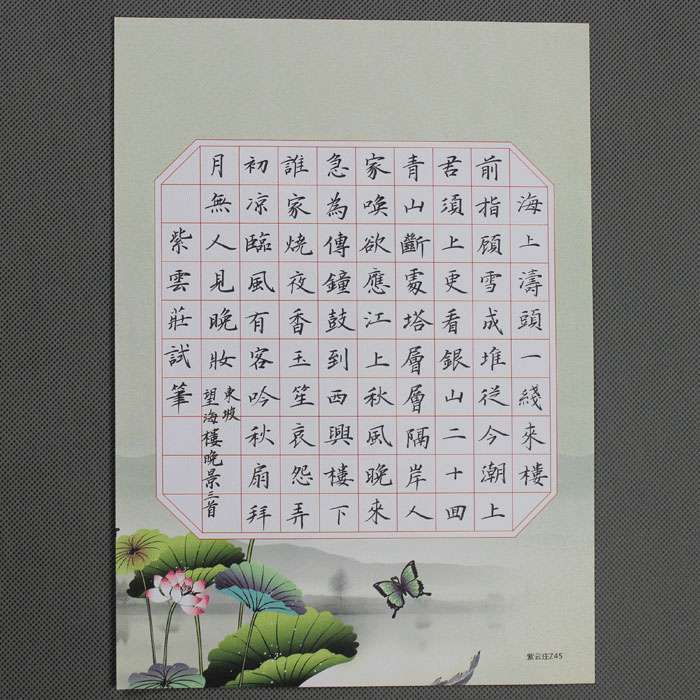 海上濤頭一綫來樓
前指顧雪成堆從今潮上
君須上更看銀山二十回
青山斷處塔層層隔岸人
家喚欲應江上秋風晚來
急為傳鐘鼓到西興樓下
誰家燒夜香玉笙哀怨弄
初涼臨風有客吟秋扇拜
月無人見晚妝
東坡
望海樓晚景三首
紫雲莊試筆
紫云庄Z45